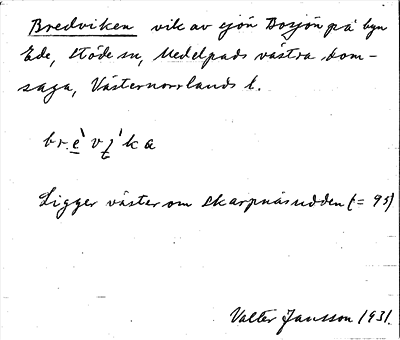 Bredviken vik av sjön Borsjön på byn
Ede, Stöde sn, Medelpads västra dom-
saga, Västernorrlands l.
br.e`vi̥'ka
Ligger väster om Skarpnäsudden (= 95)
Valter Jansson 1931.